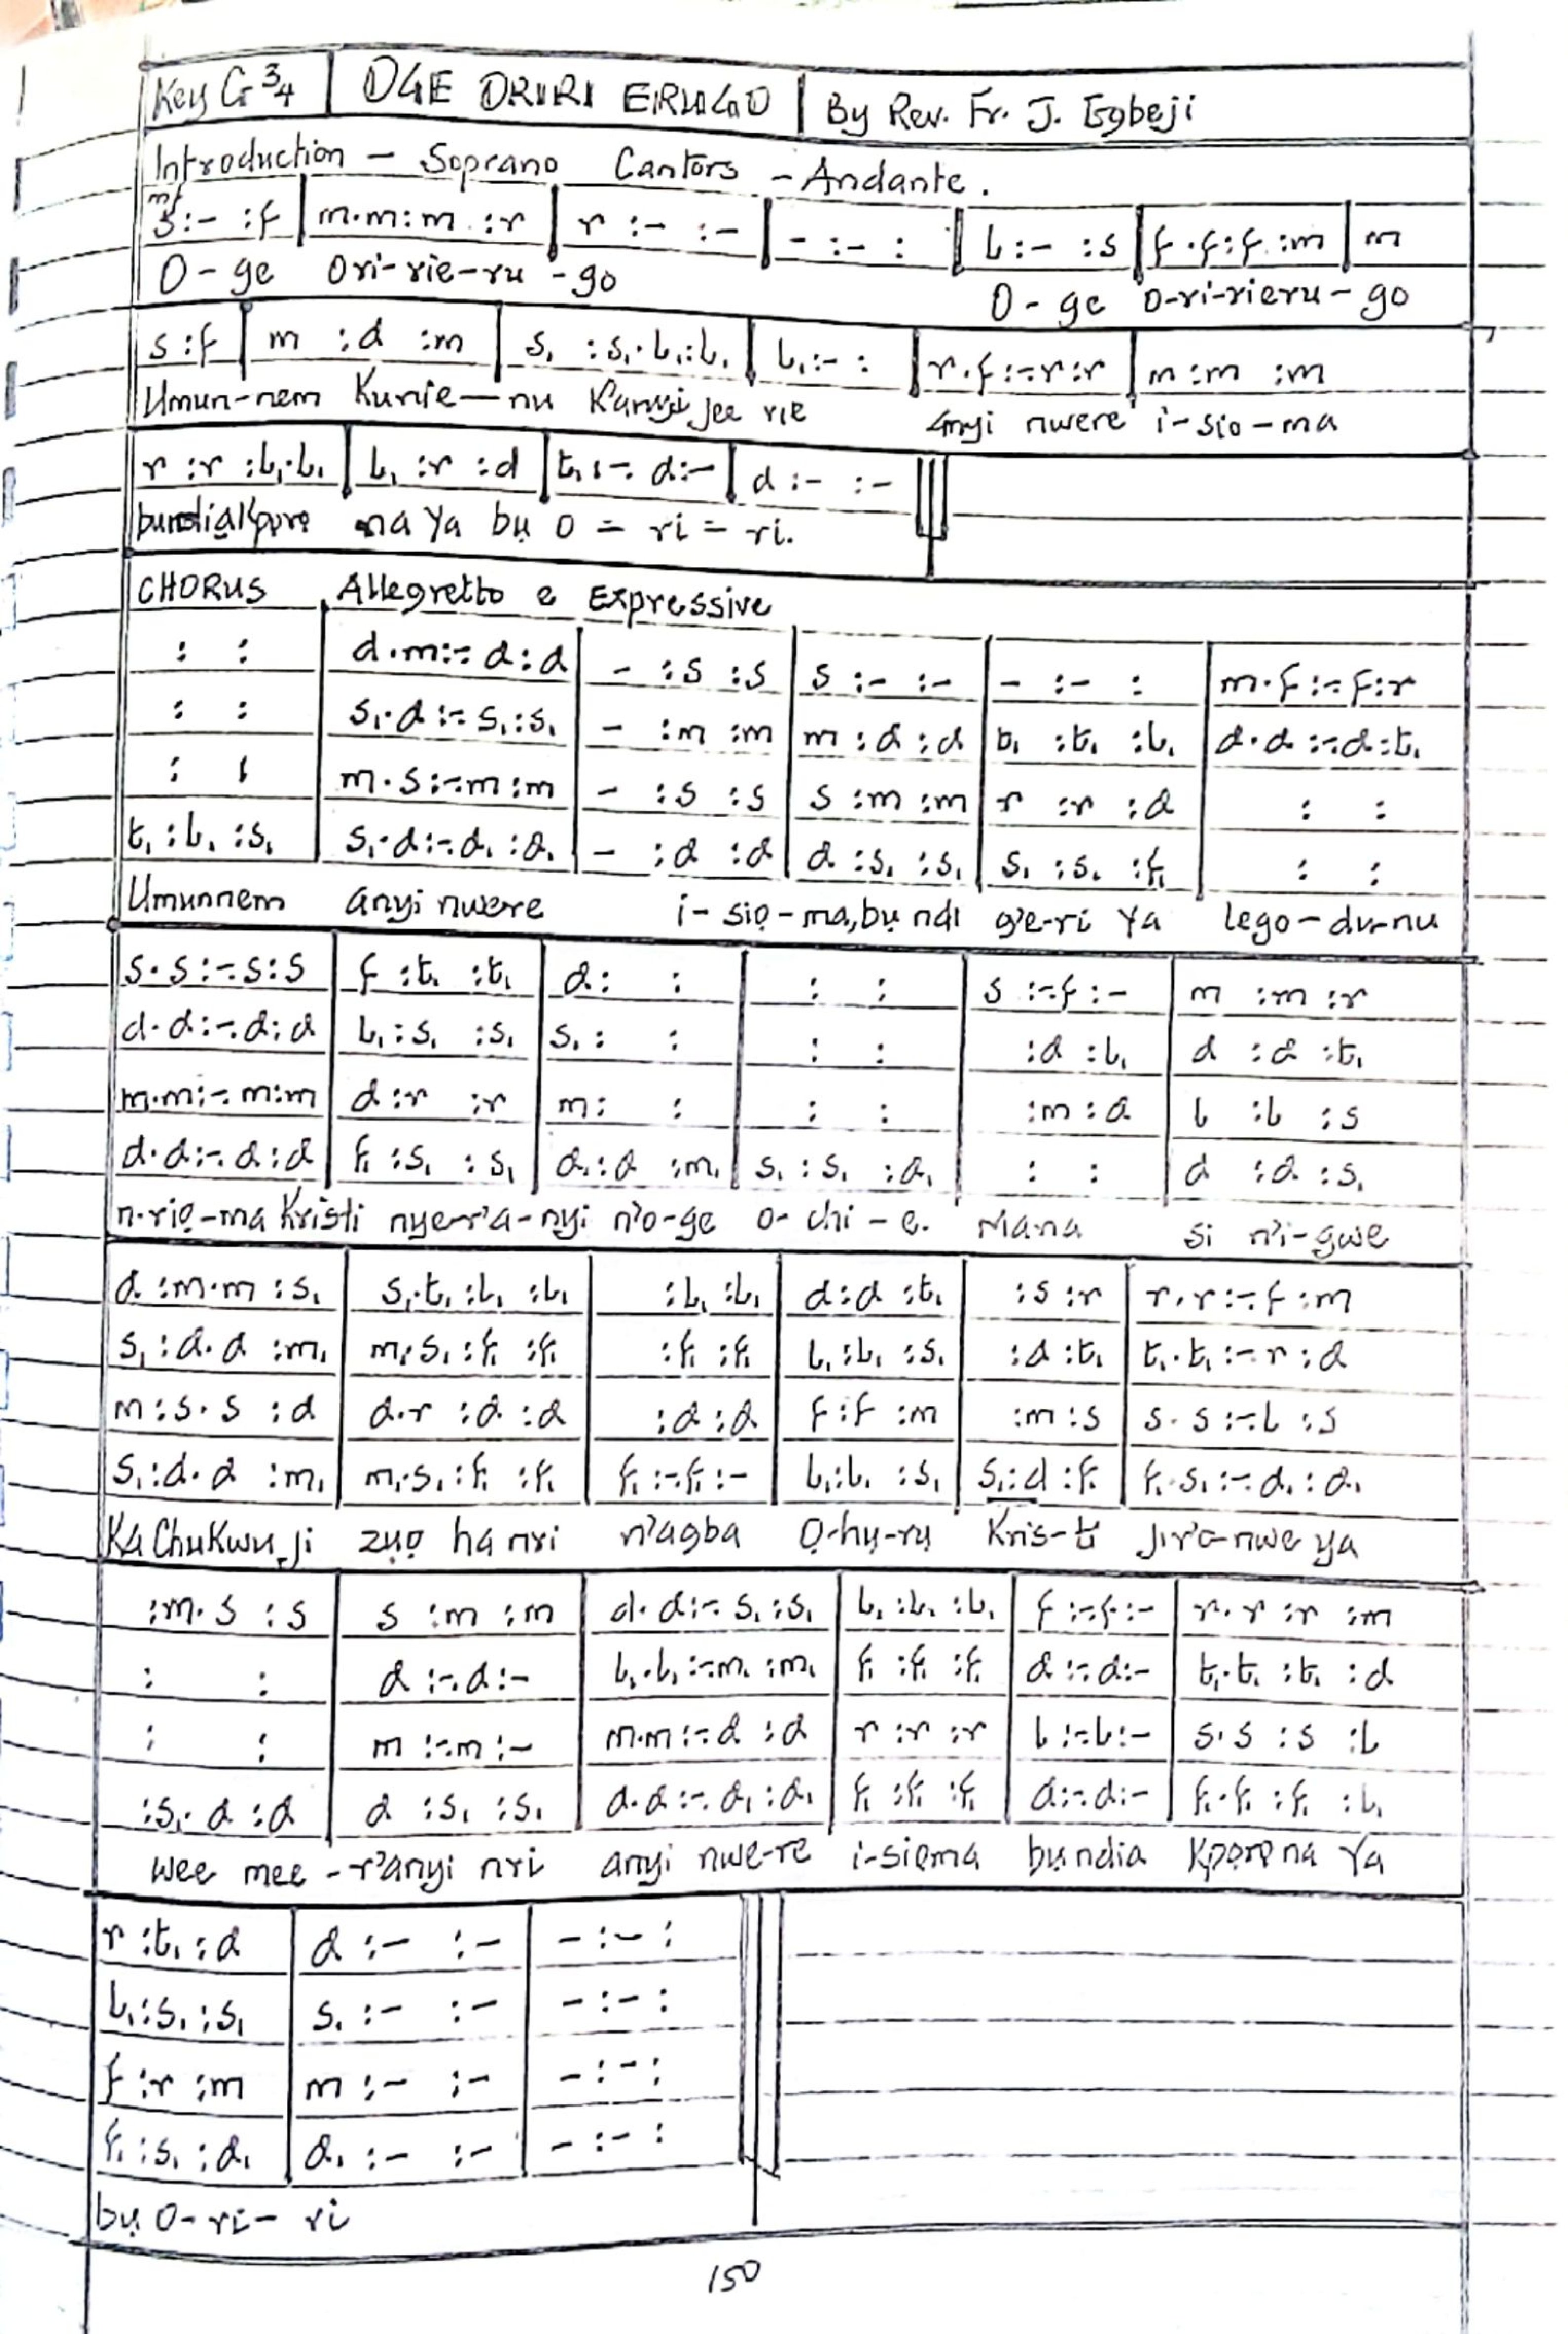 Key G 3/4 | OGE ORIRI ERUGO | By Rev. Fr. J. Egbeji
Introduction – Soprano Cantors – Andante.
mf
s:- :f | m.m:m :r | r :- :- | - :- : | l :- :s | f.f:f :m | m
O-ge Ori-rie-ru-go O-ge o-ri-rieru-go
s:f | m :d :m | s₁ :s₁.l₁:l₁ | l₁:- : | r.f:-.r:r | m:m :m
Umun-nem Kunie-nu Kanyi jee rie anyi nwere i-sio-ma
r :r :l₁.l₁ | l₁ :r :d | t₁:-. d:- | d :- :-
na ya bụ o = ri = ri.
CHORUS Allegretto e Expressive
: : | d.m:-.d:d | - :s :s | s :- :- | - :- : | m.f:-.f:r
: : | s₁.d:-.s₁:s₁ | - :m :m | m :d :d | t₁ :t₁ :l₁ | d.d:-.d:t₁
: : | m.s:-.m:m | - :s :s | s :m :m | r :r :d | : :
t₁ :l₁ :s₁ | s₁.d:-.d₁:d₁ | - :d :d | d :s₁ :s₁ | s₁ :s₁ :f₁ | : :
Umunnem anyi nwere i-sio̩-ma, bụ ndi g'e-ri ya lego-du-nu
s.s:-.s:s | f :t₁ :t₁ | d: : | : : | s :-.f :- | m :m :r
d.d:-.d:d | l₁:s₁ :s₁ | s₁: : | : : | :d :l₁ | d :d :t₁
m.m:-.m:m | d:r :r | m: : | : : | :m :d | l :l :s
d.d:-.d:d | f₁ :s₁ :s₁ | d₁:d :m₁ | s₁ :s₁ :d₁ | : : | d :d :s₁
n-rio̩-ma Kristi nye-r'a-nyi n'o-ge o-chi-e. Mana si n'i-gwe
d :m.m :s₁ | s₁.t₁:l₁ :l₁ | :l₁ :l₁ | d:d :t₁ | :s :r | r.r:-.f :m
s₁:d.d :m₁ | m₁.s₁:f₁ :f₁ | :f₁ :f₁ | l₁:l₁ :s₁ | :d :t₁ | t₁.t₁:-.r:d
m:s.s :d | d.r :d :d | :d :d | f:f :m | :m :s | s.s:-.l :s
s₁:d.d :m₁ | m₁.s₁:f₁ :f₁ | f₁:-.f₁:- | l₁:l₁ :s₁ | s₁:d :f₁ | f₁.s₁:-.d₁:d₁
Ka Chukwu ji zụo̩ ha nri n'agba O̩-hụ-rụ Kris-ti jir'o-nwe ya
:m.s :s | s :m :m | d.d:-.s₁:s₁ | l₁ :l₁ :l₁ | f :-.f:- | r.r :r :m
: : | d :-.d:- | l₁.l₁:-.m₁:m₁ | f₁ :f₁ :f₁ | d :-.d:- | t₁.t₁ :t₁ :d
: : | m :-.m:- | m.m:-.d :d | r :r :r | l :-.l:- | s.s :s :l
:s₁.d :d | d :s₁ :s₁ | d.d:-.d₁:d₁ | f₁ :f₁ :f₁ | d:-.d:- | f₁.f₁ :f₁ :l₁
wee mee-r'anyi nri anyi nwe-re i-sioma bụ ndia Kpo̩ro̩ na Ya
r :t₁ :d | d :- :- | - :- :
l₁:s₁ :s₁ | s₁ :- :- | - :- :
f :r :m | m :- :- | - :- :
f₁ :s₁ :d₁ | d₁ :- :- | - :- :
bụ o-ri-ri
150